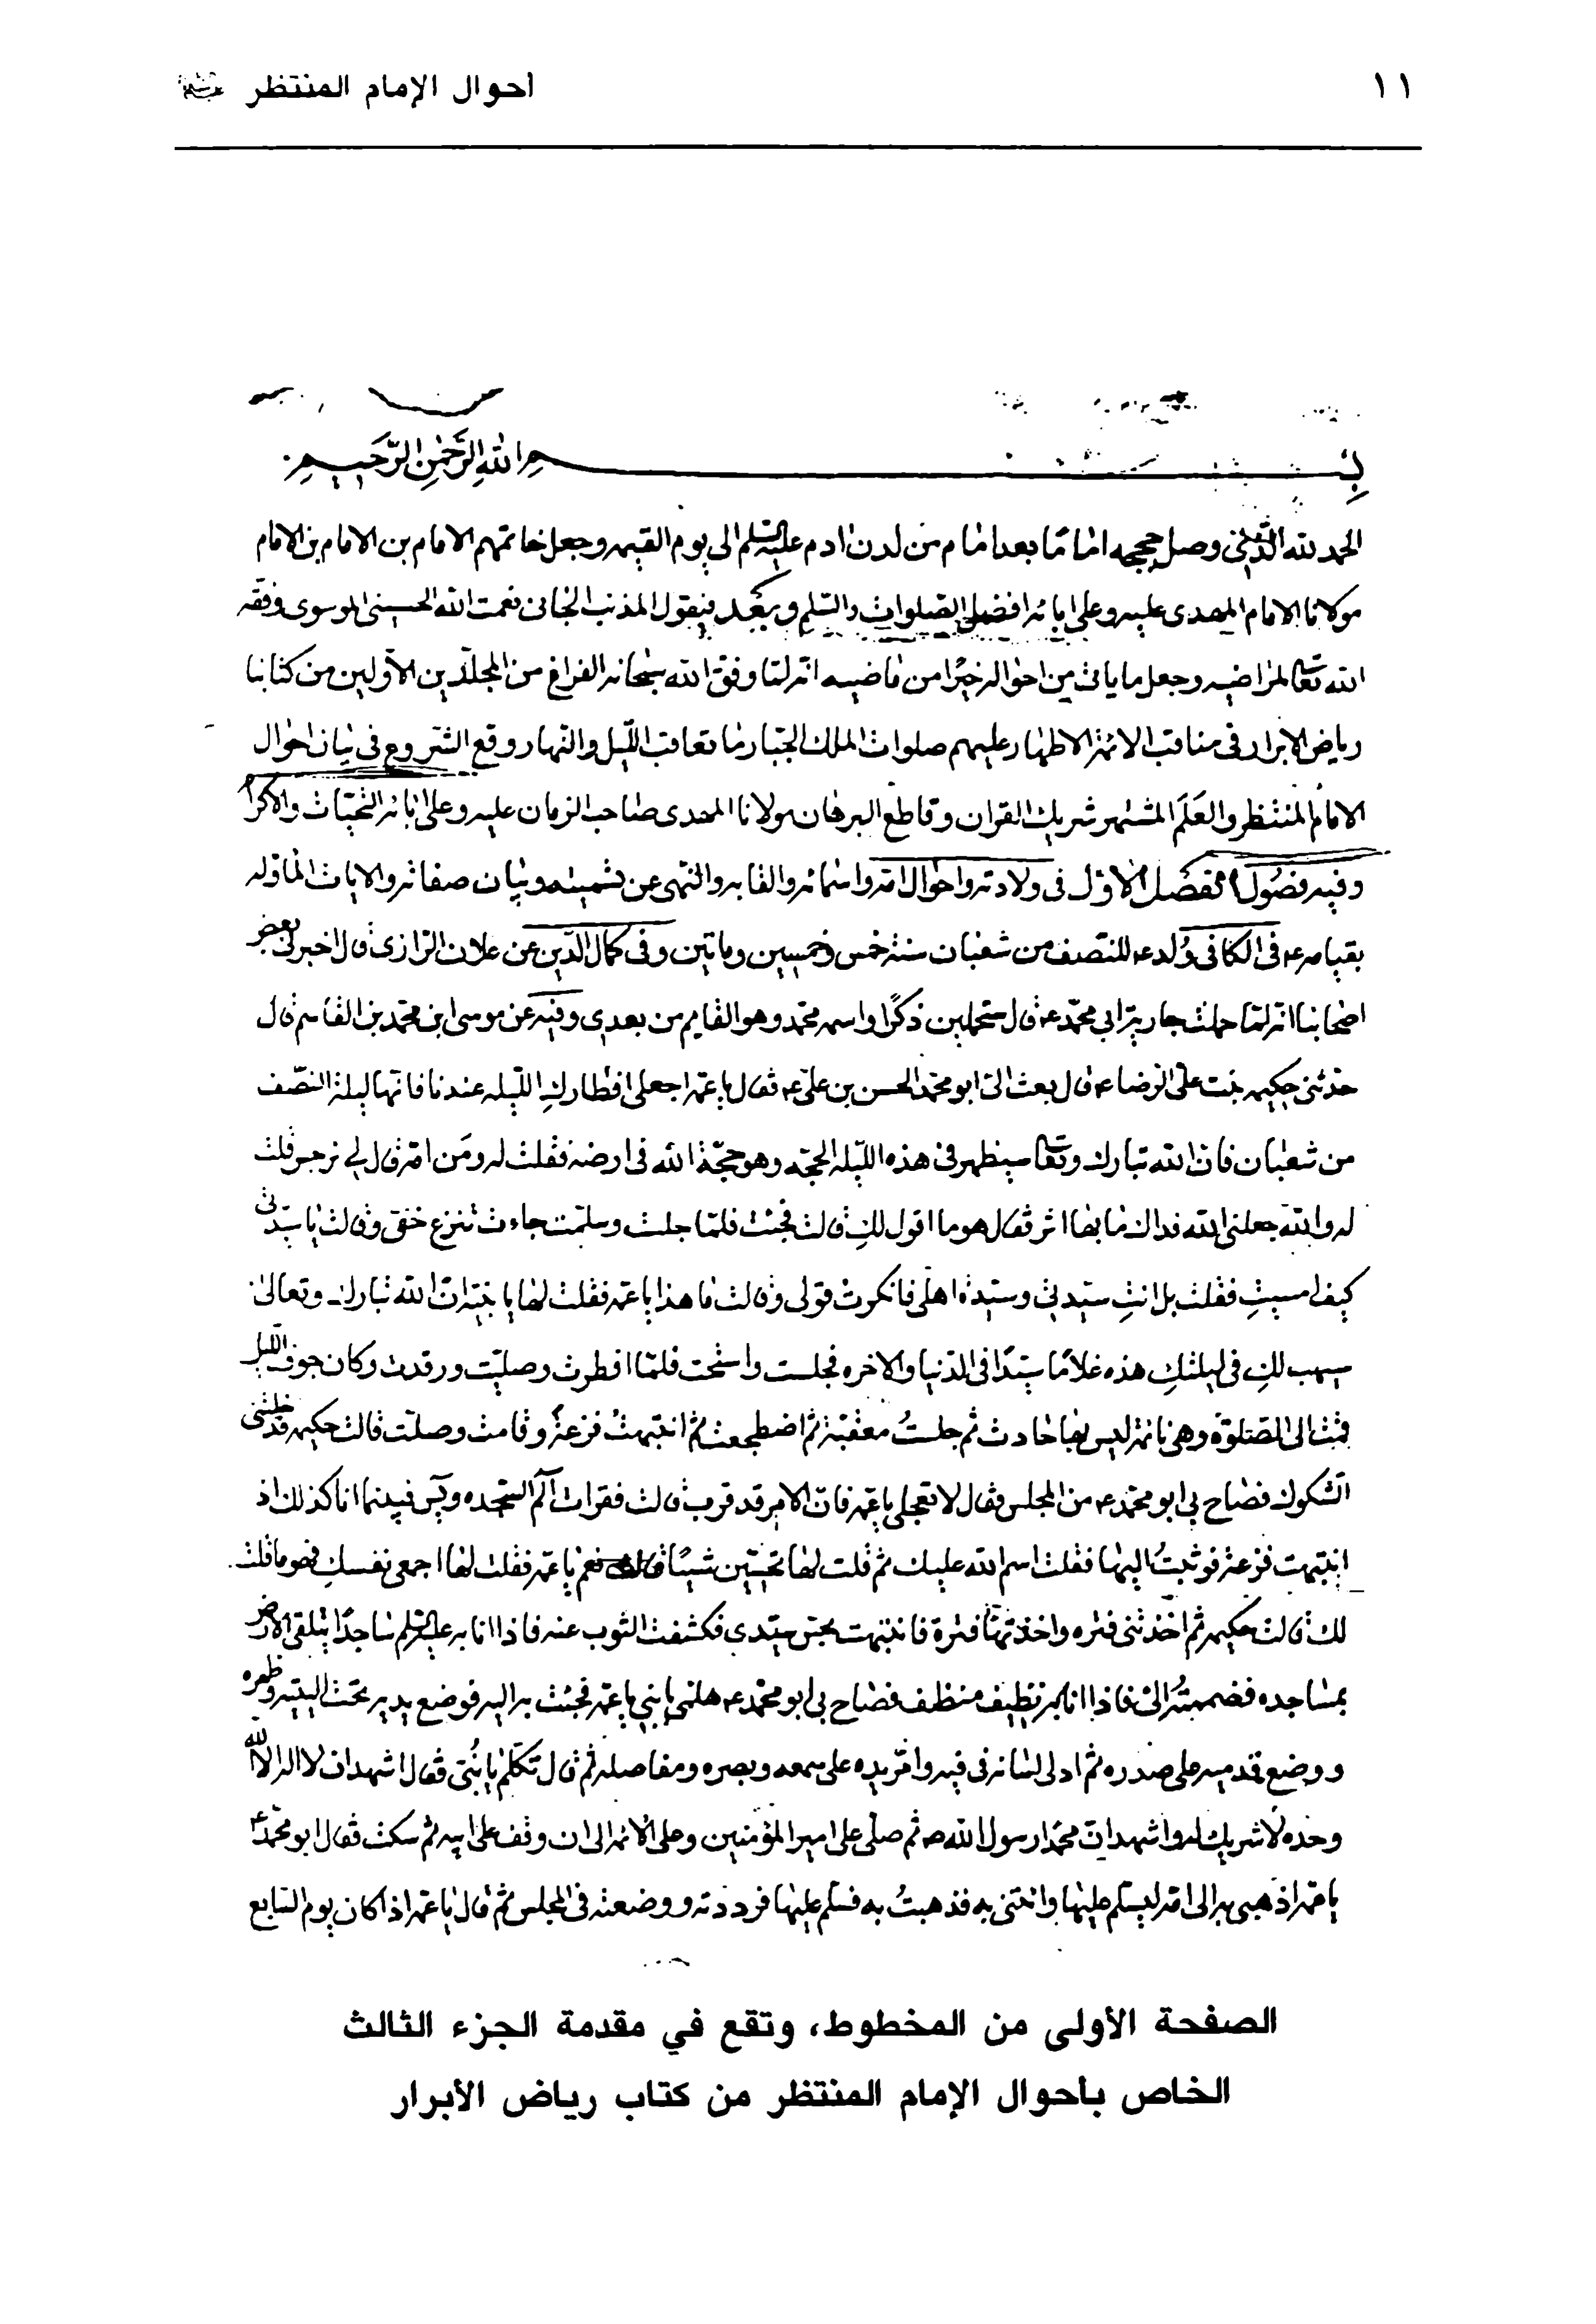 ١١
أحوال الإمام المنتظر
بسم الله الرحمن الرحيم
الحمد لله الذي وصل حججه اماما بعد امام من لدن ادم عليه السلم الى يوم القيمه وجعل خاتمهم الامام بن الامام بن الامام
مولانا الامام المهدى عليه وعلى ابائه افضل الصلوات والسلم وبعد فيقول المذنب الجانى نعمت الله الحسينى الموسوى وفقه
الله تعالى لمراضيه وجعل ما ياتى من احواله خيرا من ماضيه انه لما وفق الله سبحانه الفراغ من المجلدين الاولين من كتابنا
رياض الابرار فى مناقب الائمه الاطهار عليهم صلوات الملك الجبار ما تعاقب الليل والنهار وقع الشروع فى بيان احوال
الامام المنتظر والعلم المشتهر شريك القران وقاطع البرهان مولانا المهدى صاحب الزمان عليه وعلى ابائه التحيات والاكرام
وفيه فصول الفصل الاول فى ولادته واحوال امه واسمائه والقابه والنهى عن تسميته وبيان صفاته والايات الماوله
بقيامه ع فى الكافى ولد ع للنصف من شعبان سنة خمس وخمسين وماتين وفى كمال الدين عن علان الرازى قال اخبرنى بعض
اصحابنا انه لما حملت جارية ابي محمد ع قال ستحملين ذكرا واسمه محمد وهو القايم من بعدى وفيه عن موسى ابن محمد بن القاسم قال
حدثتنى حكيمه بنت على الرضا ع قال بعث الى ابو محمد الحسن بن على ع فقال يا عمه اجعلى افطارك الليله عندنا فانها ليلة النصف
من شعبان فان الله تبارك وتعالى سيظهر فى هذه الليله الحجه وهو حجة الله فى ارضه فقلت له ومن امه قال لي نرجس قلت
له والله جعلنى الله فداك ما بها اثر فقال هو ما اقول لك قالت فجئت فلما جلست وسلمت جاءت تنزع خفى وقالت يا سيدتى
كيف امسيت فقلت بل انت سيدتى وسيدة اهلى فانكرت قولى وقالت ما هذا يا عمه فقلت لها يا بنيه ان الله تبارك وتعالى
سيهب لك فى ليلتك هذه غلاما سيدا فى الدنيا والاخره فجلست واستحت فلما افطرت وصليت ورقدت وكان جوف الليل
قمت الى الصلوة وهى نائمه ليس بها حادث ثم جلست معقبة ثم اضطجعت ثم انتبهت فزعة وقامت وصلت قالت حكيمه فدخلتنى
الشكوك فصاح بى ابو محمد ع من المجلس فقال لا تعجلى يا عمه فان الامر قد قرب قالت فقرات الم السجده ويس فبينما انا كذلك اذ
انتبهت فزعة فوثبت اليها فقلت اسم الله عليك ثم قلت لها تحسين شيئا قالت نعم يا عمه فقلت لها اجمعى نفسك فهو ما قلت
لك قالت حكيمه ثم اخذتنى فتره واخذتها فترة فانتبهت بحس سيدى فكشفت الثوب عنه فاذا انا به عليه السلم ساجدا يتلقى الارض
بمساجده فضممته الى فاذا انا به نظيف منظف فصاح بى ابو محمد ع هلمى يا بنى يا عمه فجئت به اليه فوضع يديه تحت اليتيه وظهره
ووضع قدميه على صدره ثم ادلى لسانه فى فيه وامر يده على سمعه وبصره ومفاصله ثم قال تكلم يا بنى فقال اشهد ان لا اله الا الله
وحده لا شريك له واشهد ان محمدا رسول الله ص ثم صلى على امير المؤمنين وعلى الائمه الى ان وقف على ابيه ثم سكت فقال ابو محمد ع
يا عمه اذهبى به الى امه ليسلم عليها وائتنى به فذهبت به فسلم عليها فرددته ووضعته فى المجلس ثم قال يا عمه اذا كان يوم السابع
الصفحة الأولى من المخطوط، وتقع في مقدمة الجزء الثالث
الخاص بأحوال الإمام المنتظر من كتاب رياض الأبرار